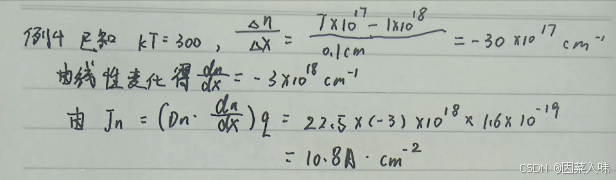 例4 已知 kT=300, Δn/Δx = (7×10^17 - 1×10^18)/0.1cm = -30×10^17 cm^-1
由线性变化得 dn/dx = -3×10^18 cm^-1
由 Jn = (Dn· dn/dx) q = 22.5×(-3)×10^18 × 1.6×10^-19
= 10.8A·cm^-2
CSDN @因菜入味